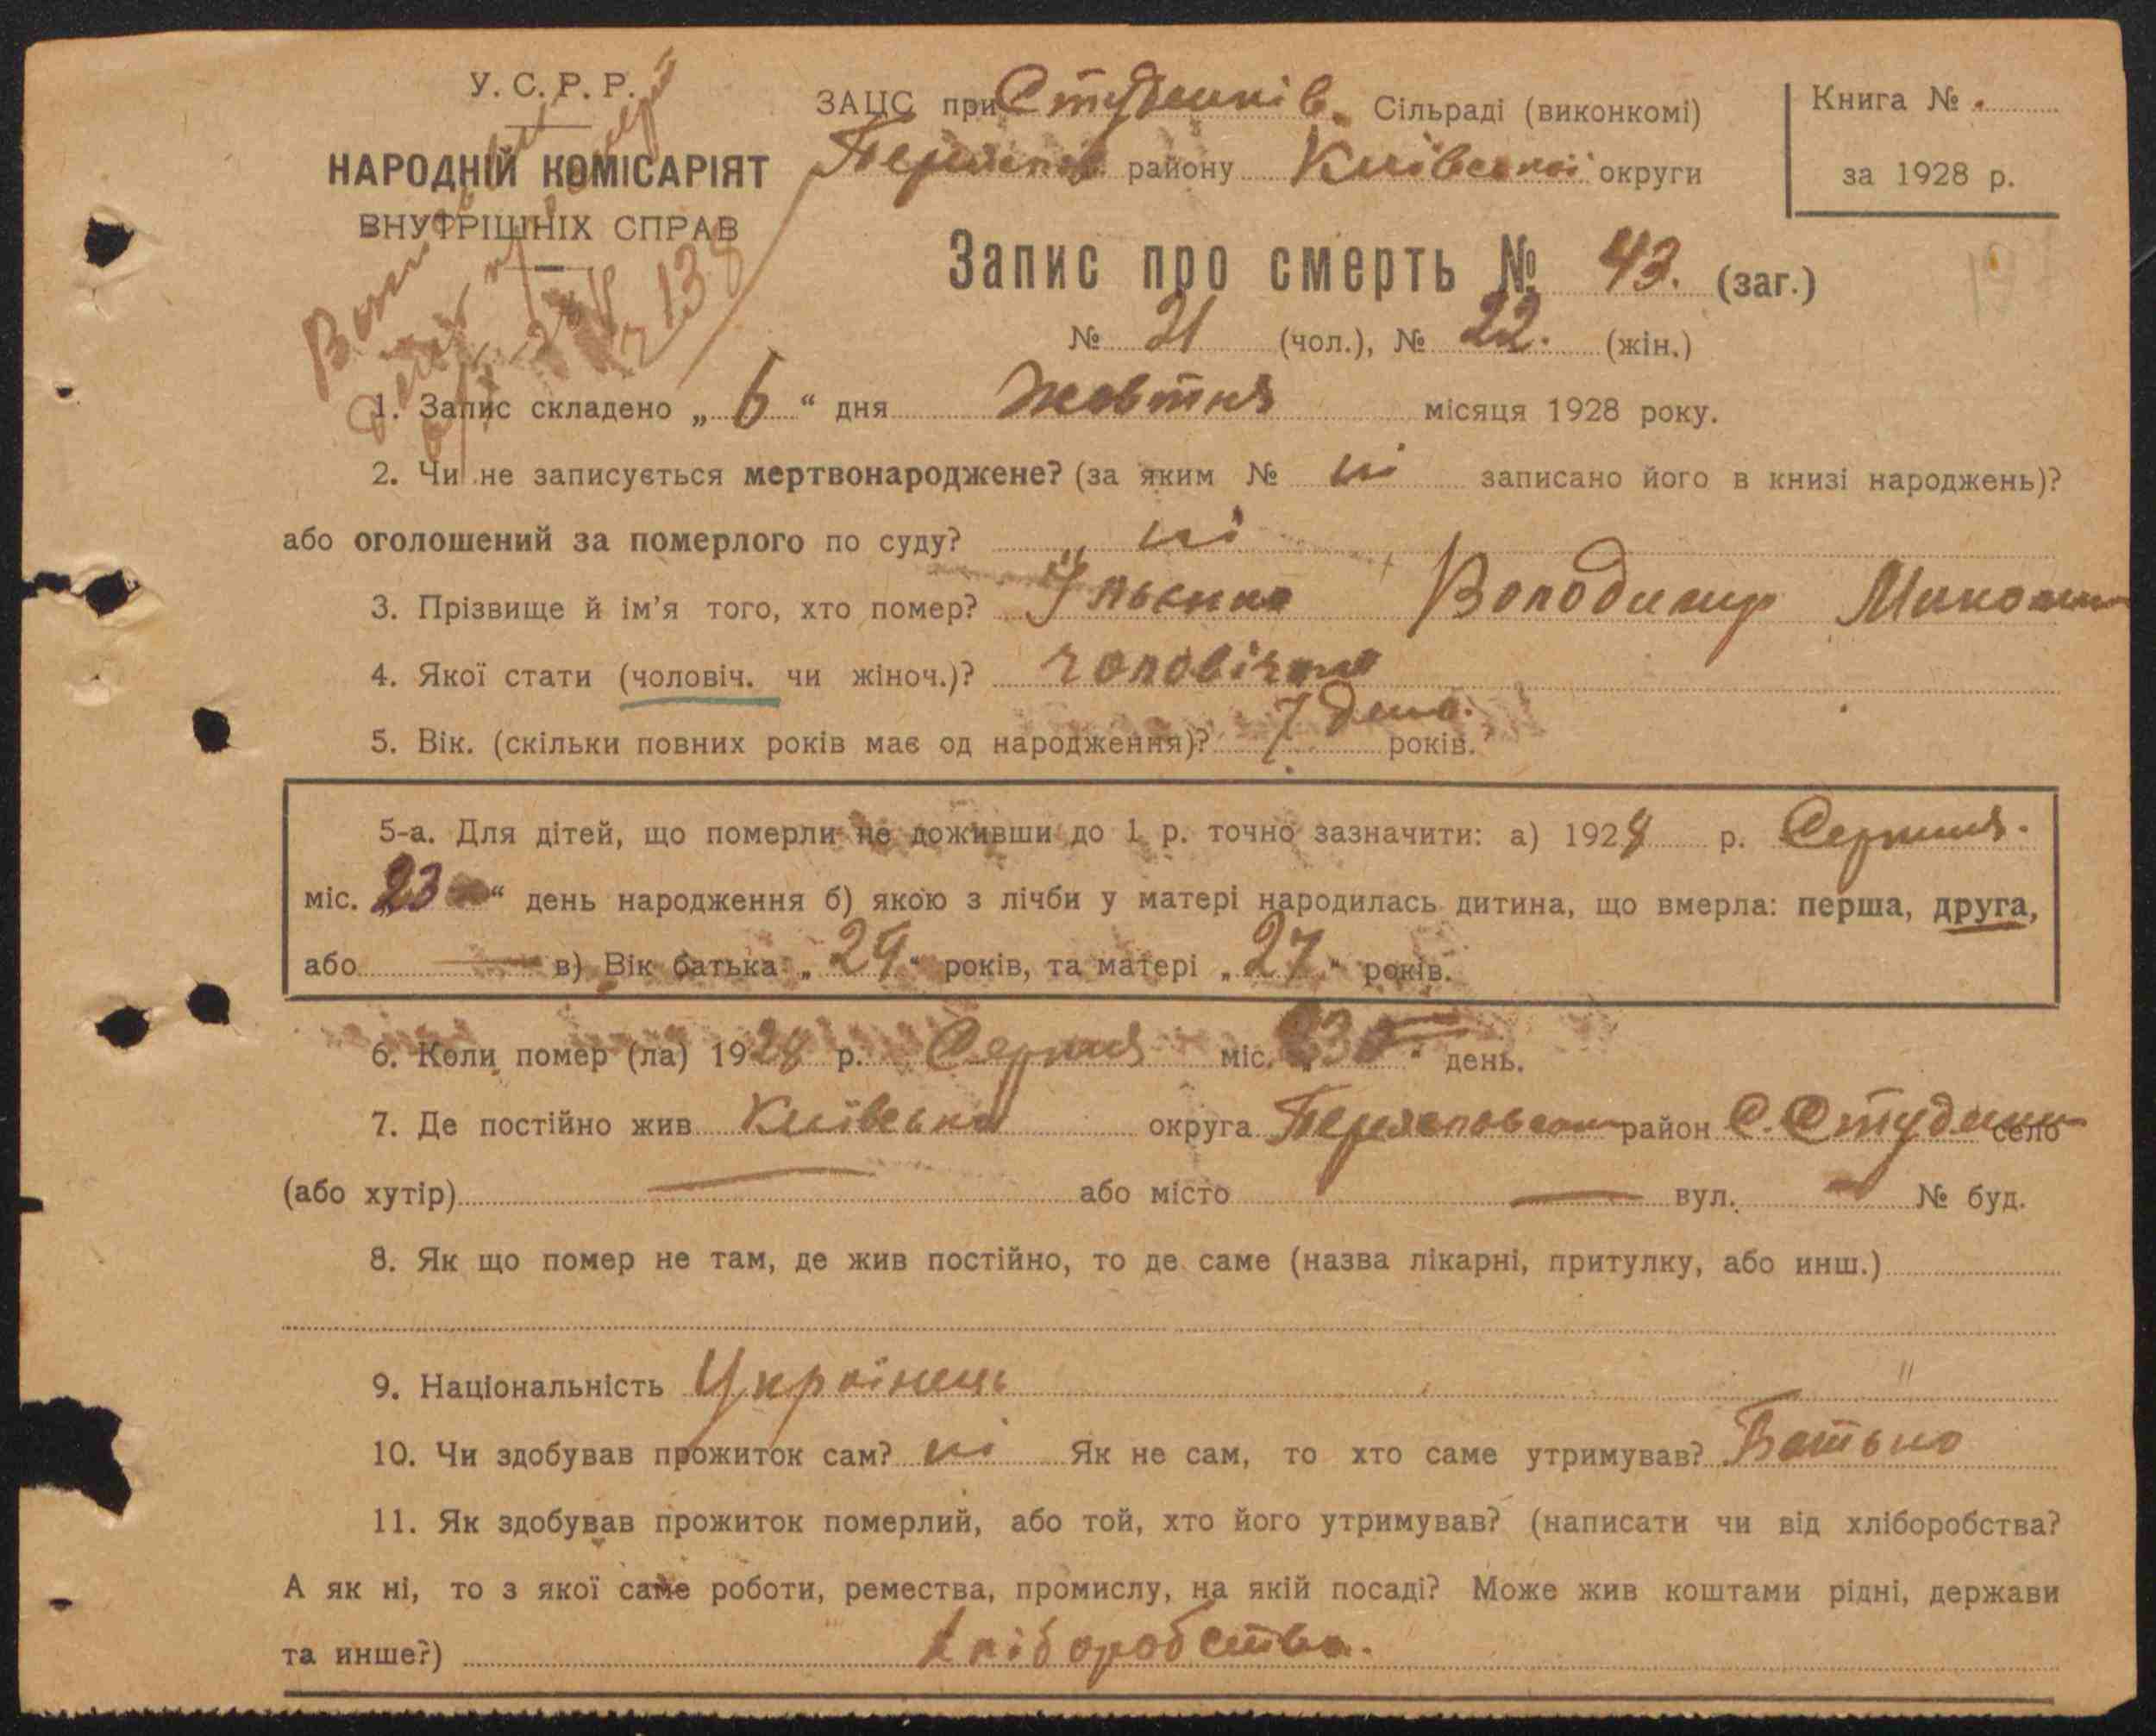 У. С. Р. Р.
НАРОДНІЙ КОМІСАРІЯТ
ВНУТРІШНІХ СПРАВ
ЗАЦС при Студенків. Сільраді (виконкомі)
району Київської округи
Книга №
за 1928 р.
Запис про смерть № 43. (заг.)
№ 21 (чол.), № 22. (жін.)
1. Запис складено „ 6 “ дня Жовтня місяця 1928 року.
2. Чи не записується мертвонароджене? (за яким № ні записано його в книзі народжень)?
або оголошений за померлого по суду? ні
3. Прізвище й ім’я того, хто помер? Володимир
4. Якої стати (чоловіч. чи жіноч.)? чоловіча
5. Вік. (скільки повних років має од народження)? 7 років.
5-а. Для дітей, що померли не доживши до 1 р. точно зазначити: а) 1928 р. Серпня.
міс. „23 “ день народження б) якою з лічби у матері народилась дитина, що вмерла: перша, друга,
або — в) Вік батька „ 29 “ років, та матері „ 27 “ років.
6. Коли помер (ла) 1928 р. Серпня міс. день.
7. Де постійно жив Київська округа район С. село
(або хутір) — або місто — вул. — № буд.
8. Як що помер не там, де жив постійно, то де саме (назва лікарні, притулку, або инш.)
9. Національність Українець
10. Чи здобував прожиток сам? ні Як не сам, то хто саме утримував? Батько
11. Як здобував прожиток померлий, або той, хто його утримував? (написати чи від хліборобства?
А як ні, то з якої саме роботи, ремества, промислу, на якій посаді? Може жив коштами рідні, держави
та инше?) Хліборобства.